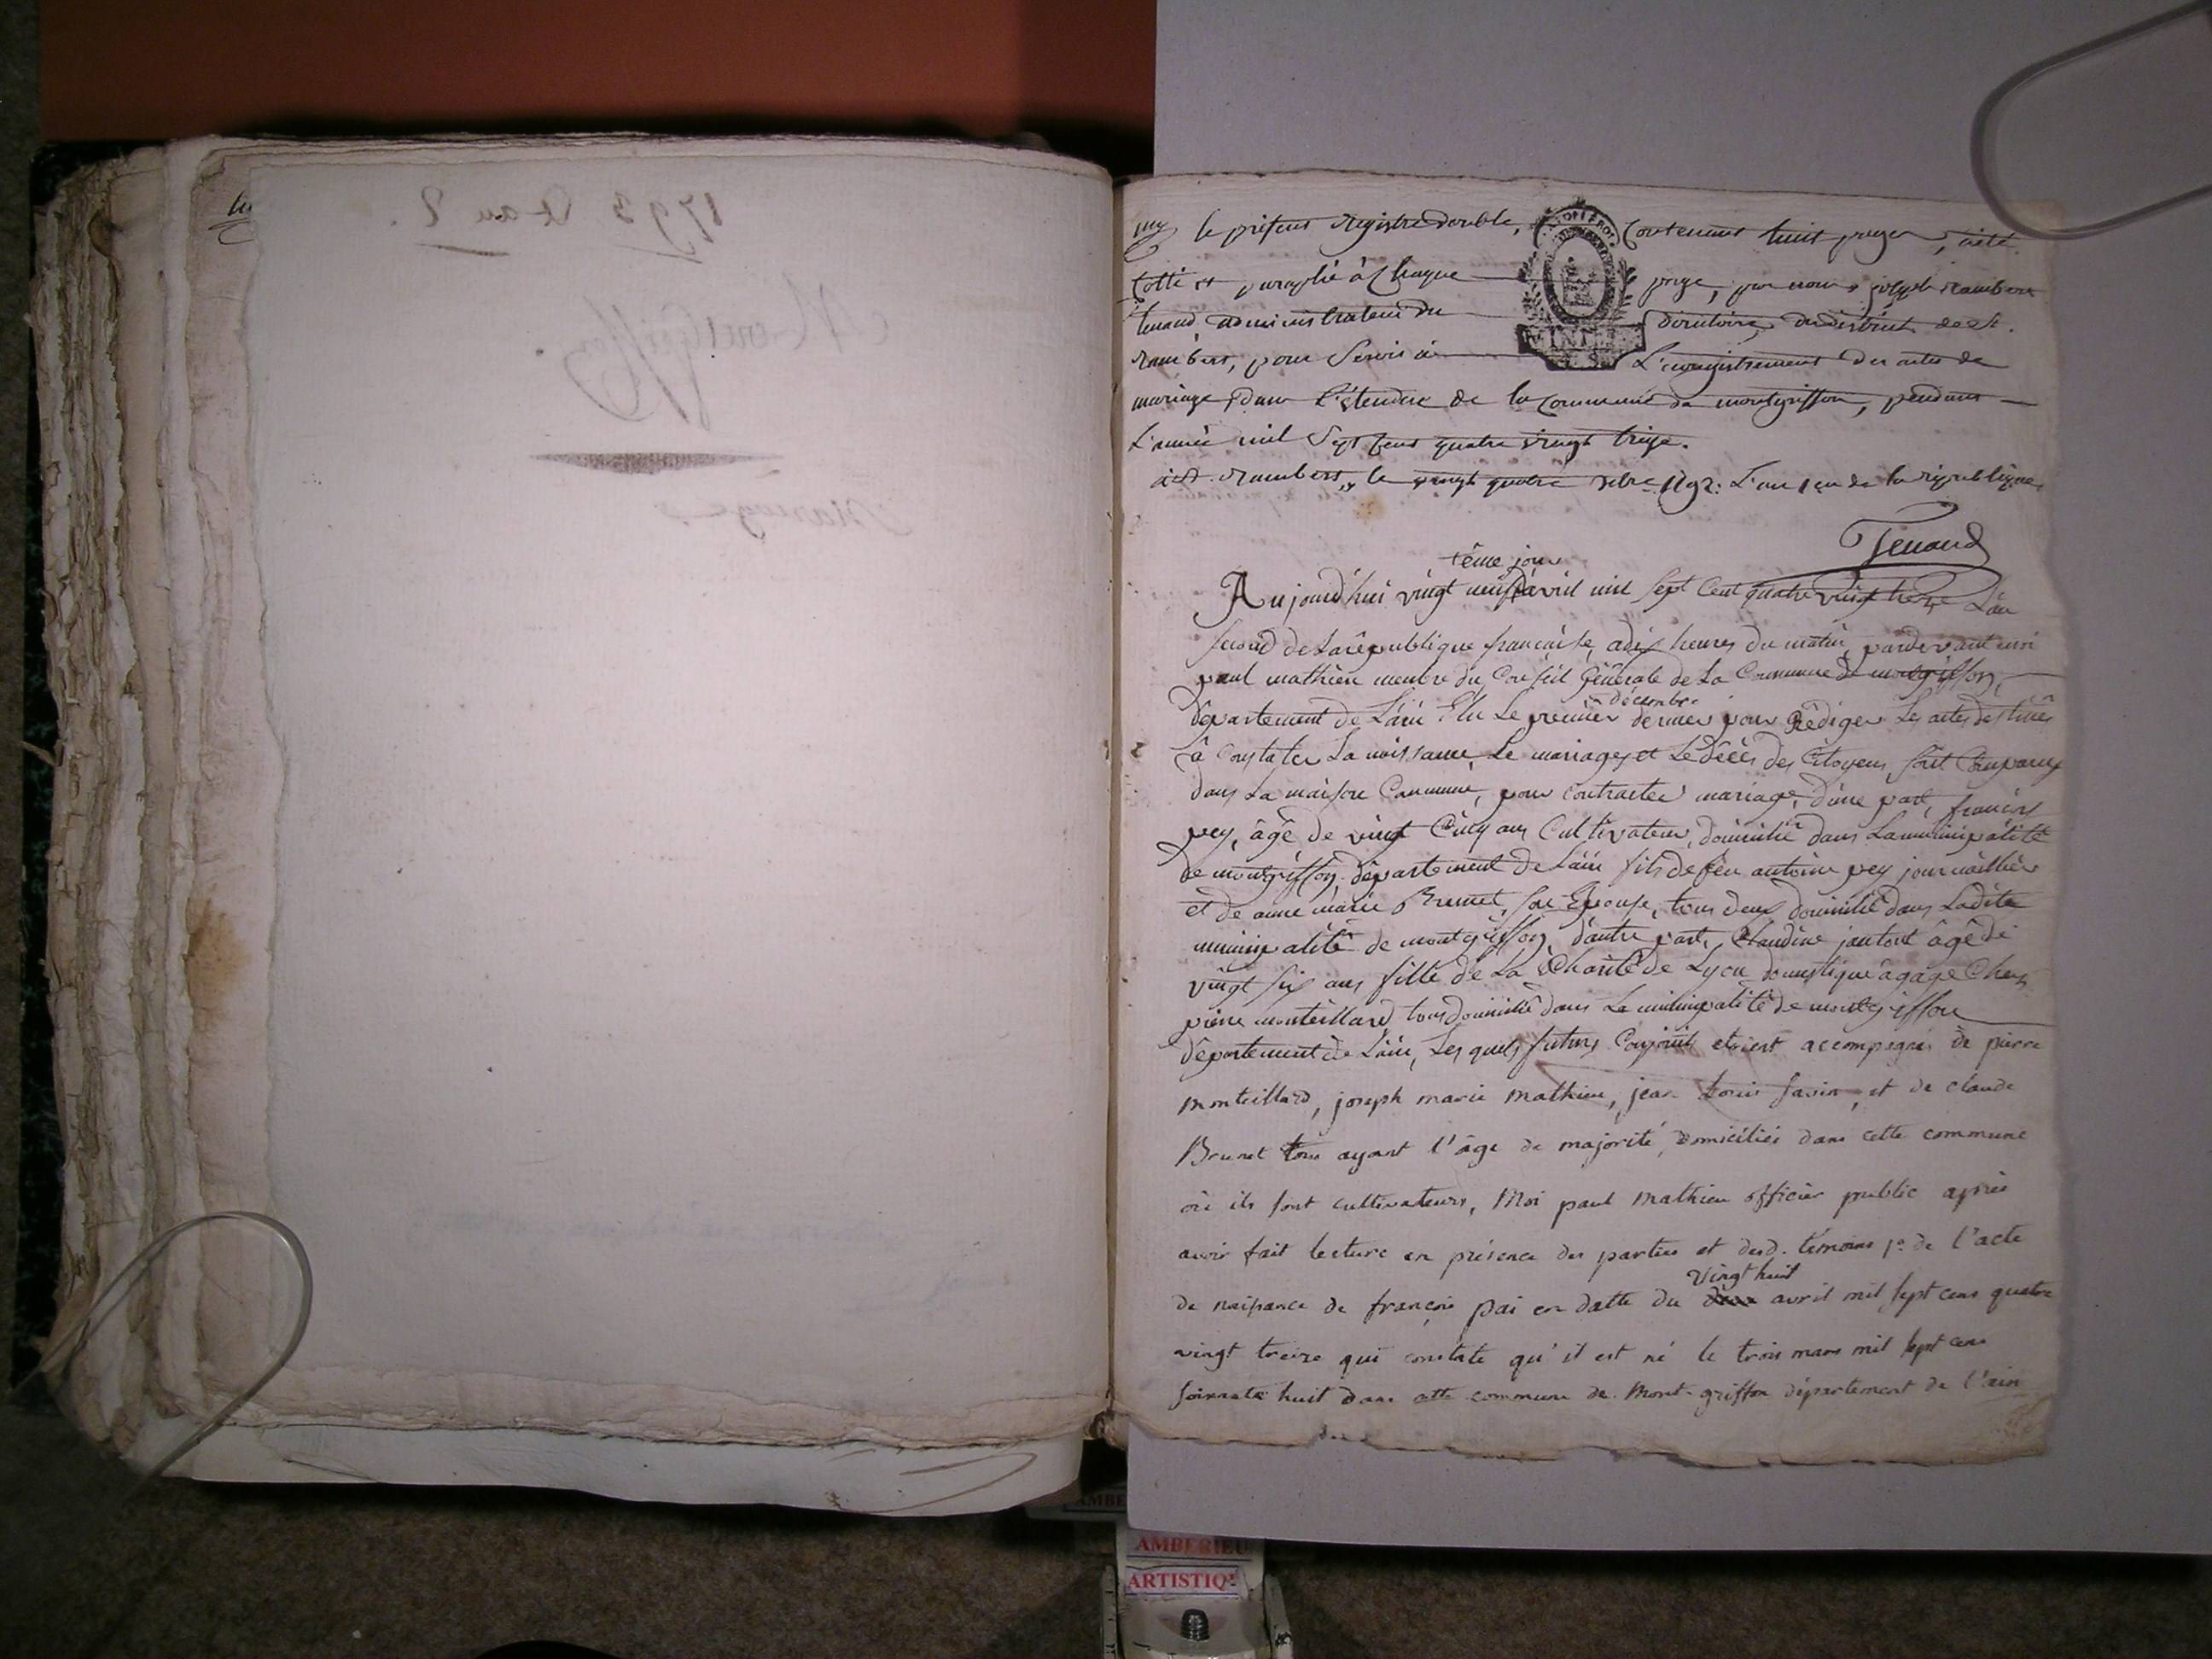 1793 et an 2.
Montgriffon
Mariages
le présent registre double, contenant huit pages, a été
Cotté et paraphé à Chaque page, par nous joseph rambert
tenand administrateur du directoire du district de st.
rambert, pour Servir à L'enregistrement des actes de
mariage, dans L'étendue de la Commune de montgriffon, pendant
L'année mil Sept Cent quatre vingt treize.
à st. rambert, le vingt quatre Xbre 1792. L'an 1er de la république
Tenand
ième jour
Aujourd'hui vingt neuf avril mil Sept Cent quatre vingt treize L'an
second de La république française, a dix heures du matin, pardevant moi
paul mathieu membre du Conseil Général de La Commune de montgriffon,
décembre
département de L'ain Elu Le premier dernier pour Rédiger Les actes destinés
à Constater La naissance, Le mariages et Le décés des Citoyens, sont Comparus
dans La maison Commune, pour contracter mariage, d'une part, françois
pey, âgé de vingt Cinq ans Cultivateur, domicilié dans La municipalité
de montgriffon, département de L'ain fils de feu antoine pey journaillier
et de anne marie Brunet, son Epouse, tous deux domicilié dans Ladite
municipalité de montgriffon, d'autre part, Claudine jantout âgé de
vingt six ans fille de La Charité de Lyon domestique à gage Chez
pierre monteillard, tous domicilié dans La municipalité de montgriffon
département de L'ain, Les quels futurs Conjoints etoient accompagnés de pierre
Monteillard, joseph marie Mathieu, jean Louis Savin, et de claude
Brunet tous ayant l'âge de majorité, domiciliés dans cette commune
où ils sont cultivateurs, Moi paul Mathieu officier public après
avoir fait lecture en présence des parties et desd. témoins 1o. de l'acte
vingt huit
de naissance de françois pai en datte du avril mil sept cens quatre
vingt treize qui constate qu'il est né le trois mars mil sept cens
soixante huit dans cette commune de Mont-griffon département de l'ain
AMBERIEU
ARTISTIQ